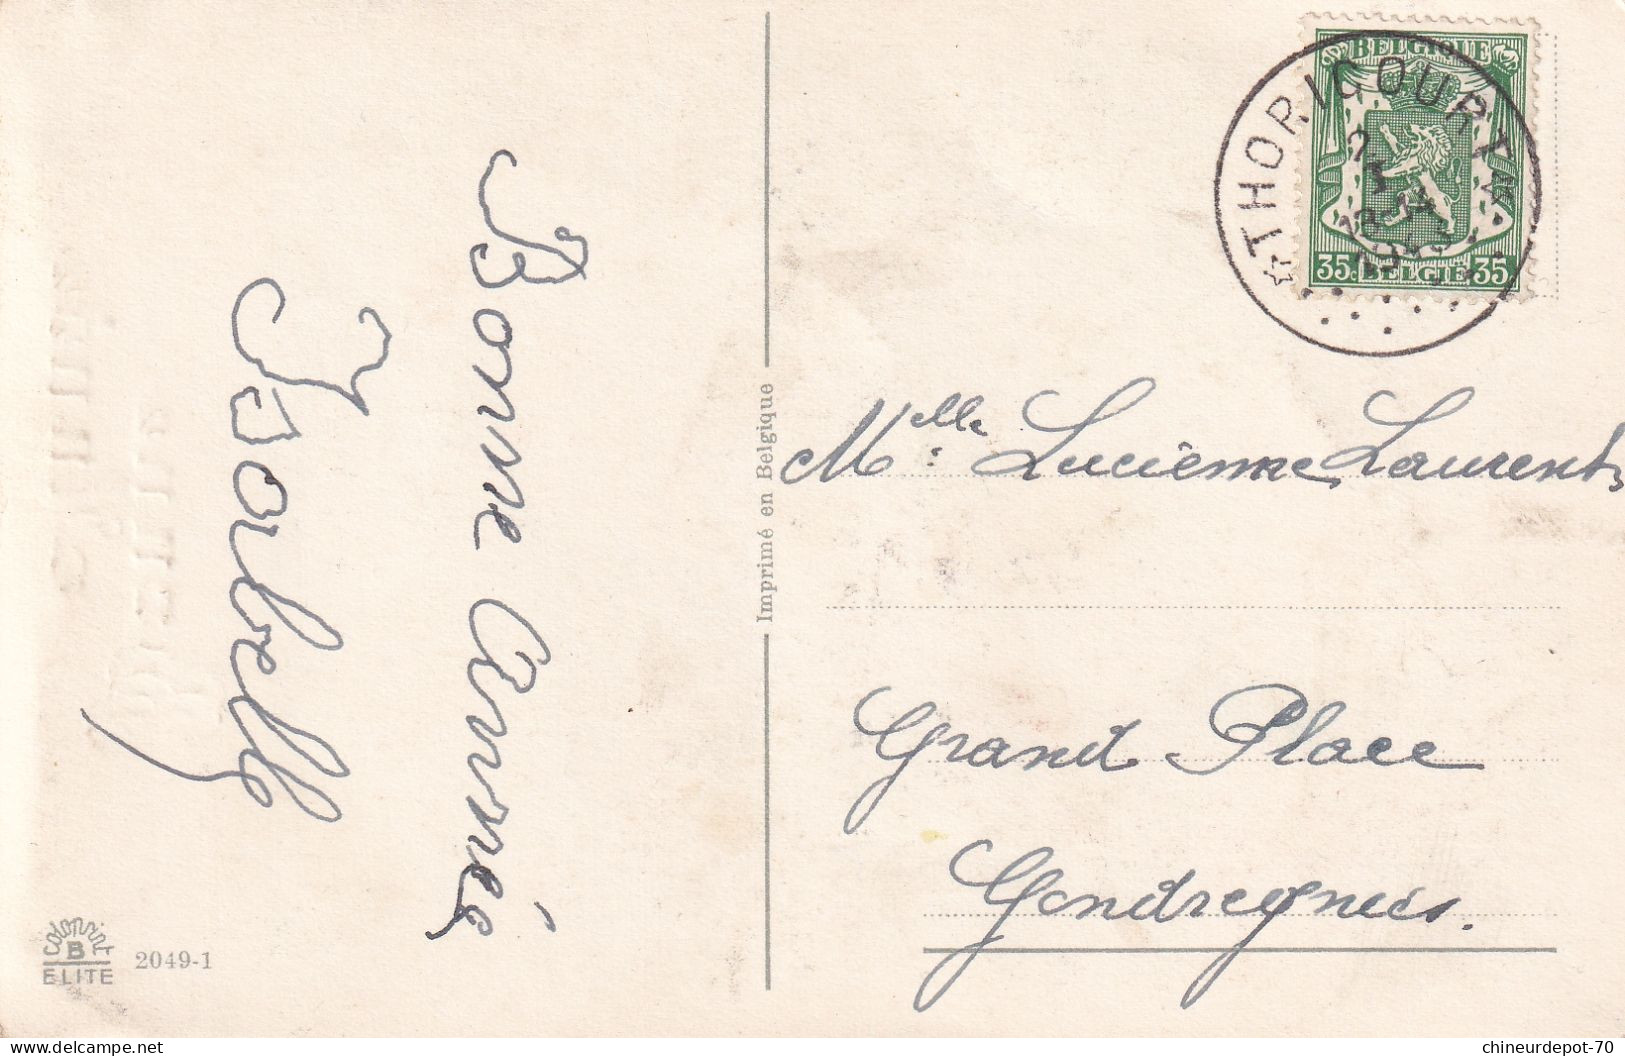 Bonne Année
Isabelle
COLORPRINT
B
ELITE
2049-1
Imprimé en Belgique
BELGIQUE
35c BELGIË 35
THORICOURT
13-14
Mlle: Lucienne Laurent
Grand Place
Gondregnies.
chineurdepot-70
www.delcampe.net